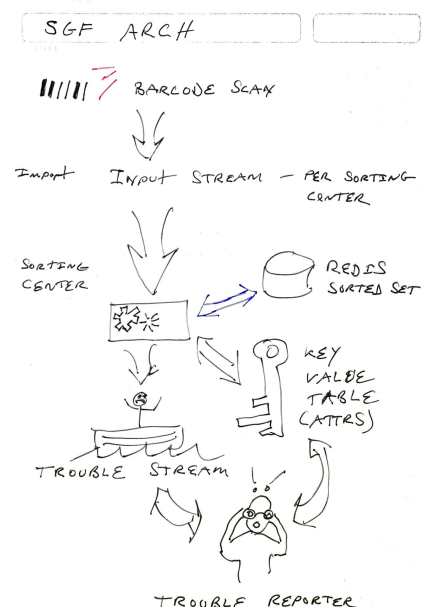 SGF ARCH
BARCODE SCAN
Import
INPUT STREAM - PER SORTING
CENTER
SORTING
CENTER
REDIS
SORTED SET
KEY
VALUE
TABLE
(ATTRS)
TROUBLE STREAM
! !
TROUBLE REPORTER